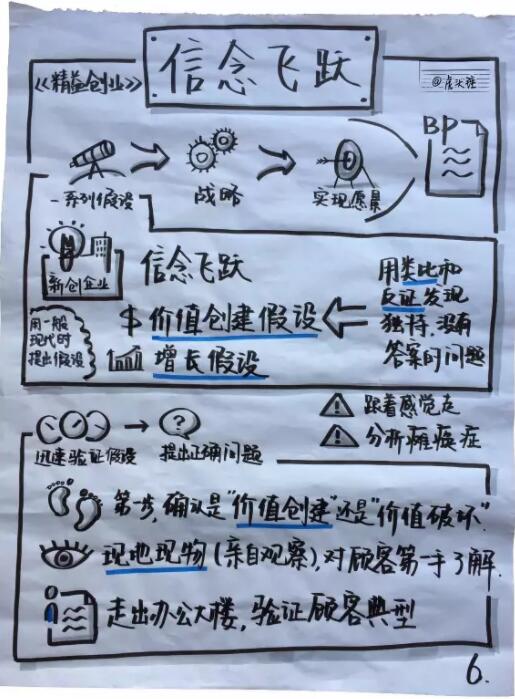 信念飞跃
《精益创业》
@虎头锤
BP
一系列假设
战略
实现愿景
新创企业
信念飞跃
用类比和
反证发现
独特,没有
答案的问题
$ 价值创建假设
增长假设
用一般
现代时
提出假设
跟着感觉走
分析瘫痪症
迅速验证假设
提出正确问题
?
第一步,确认是"价值创建"还是"价值破坏".
现地现物(亲自观察),对顾客第一手了解.
走出办公大楼,验证顾客典型
6.